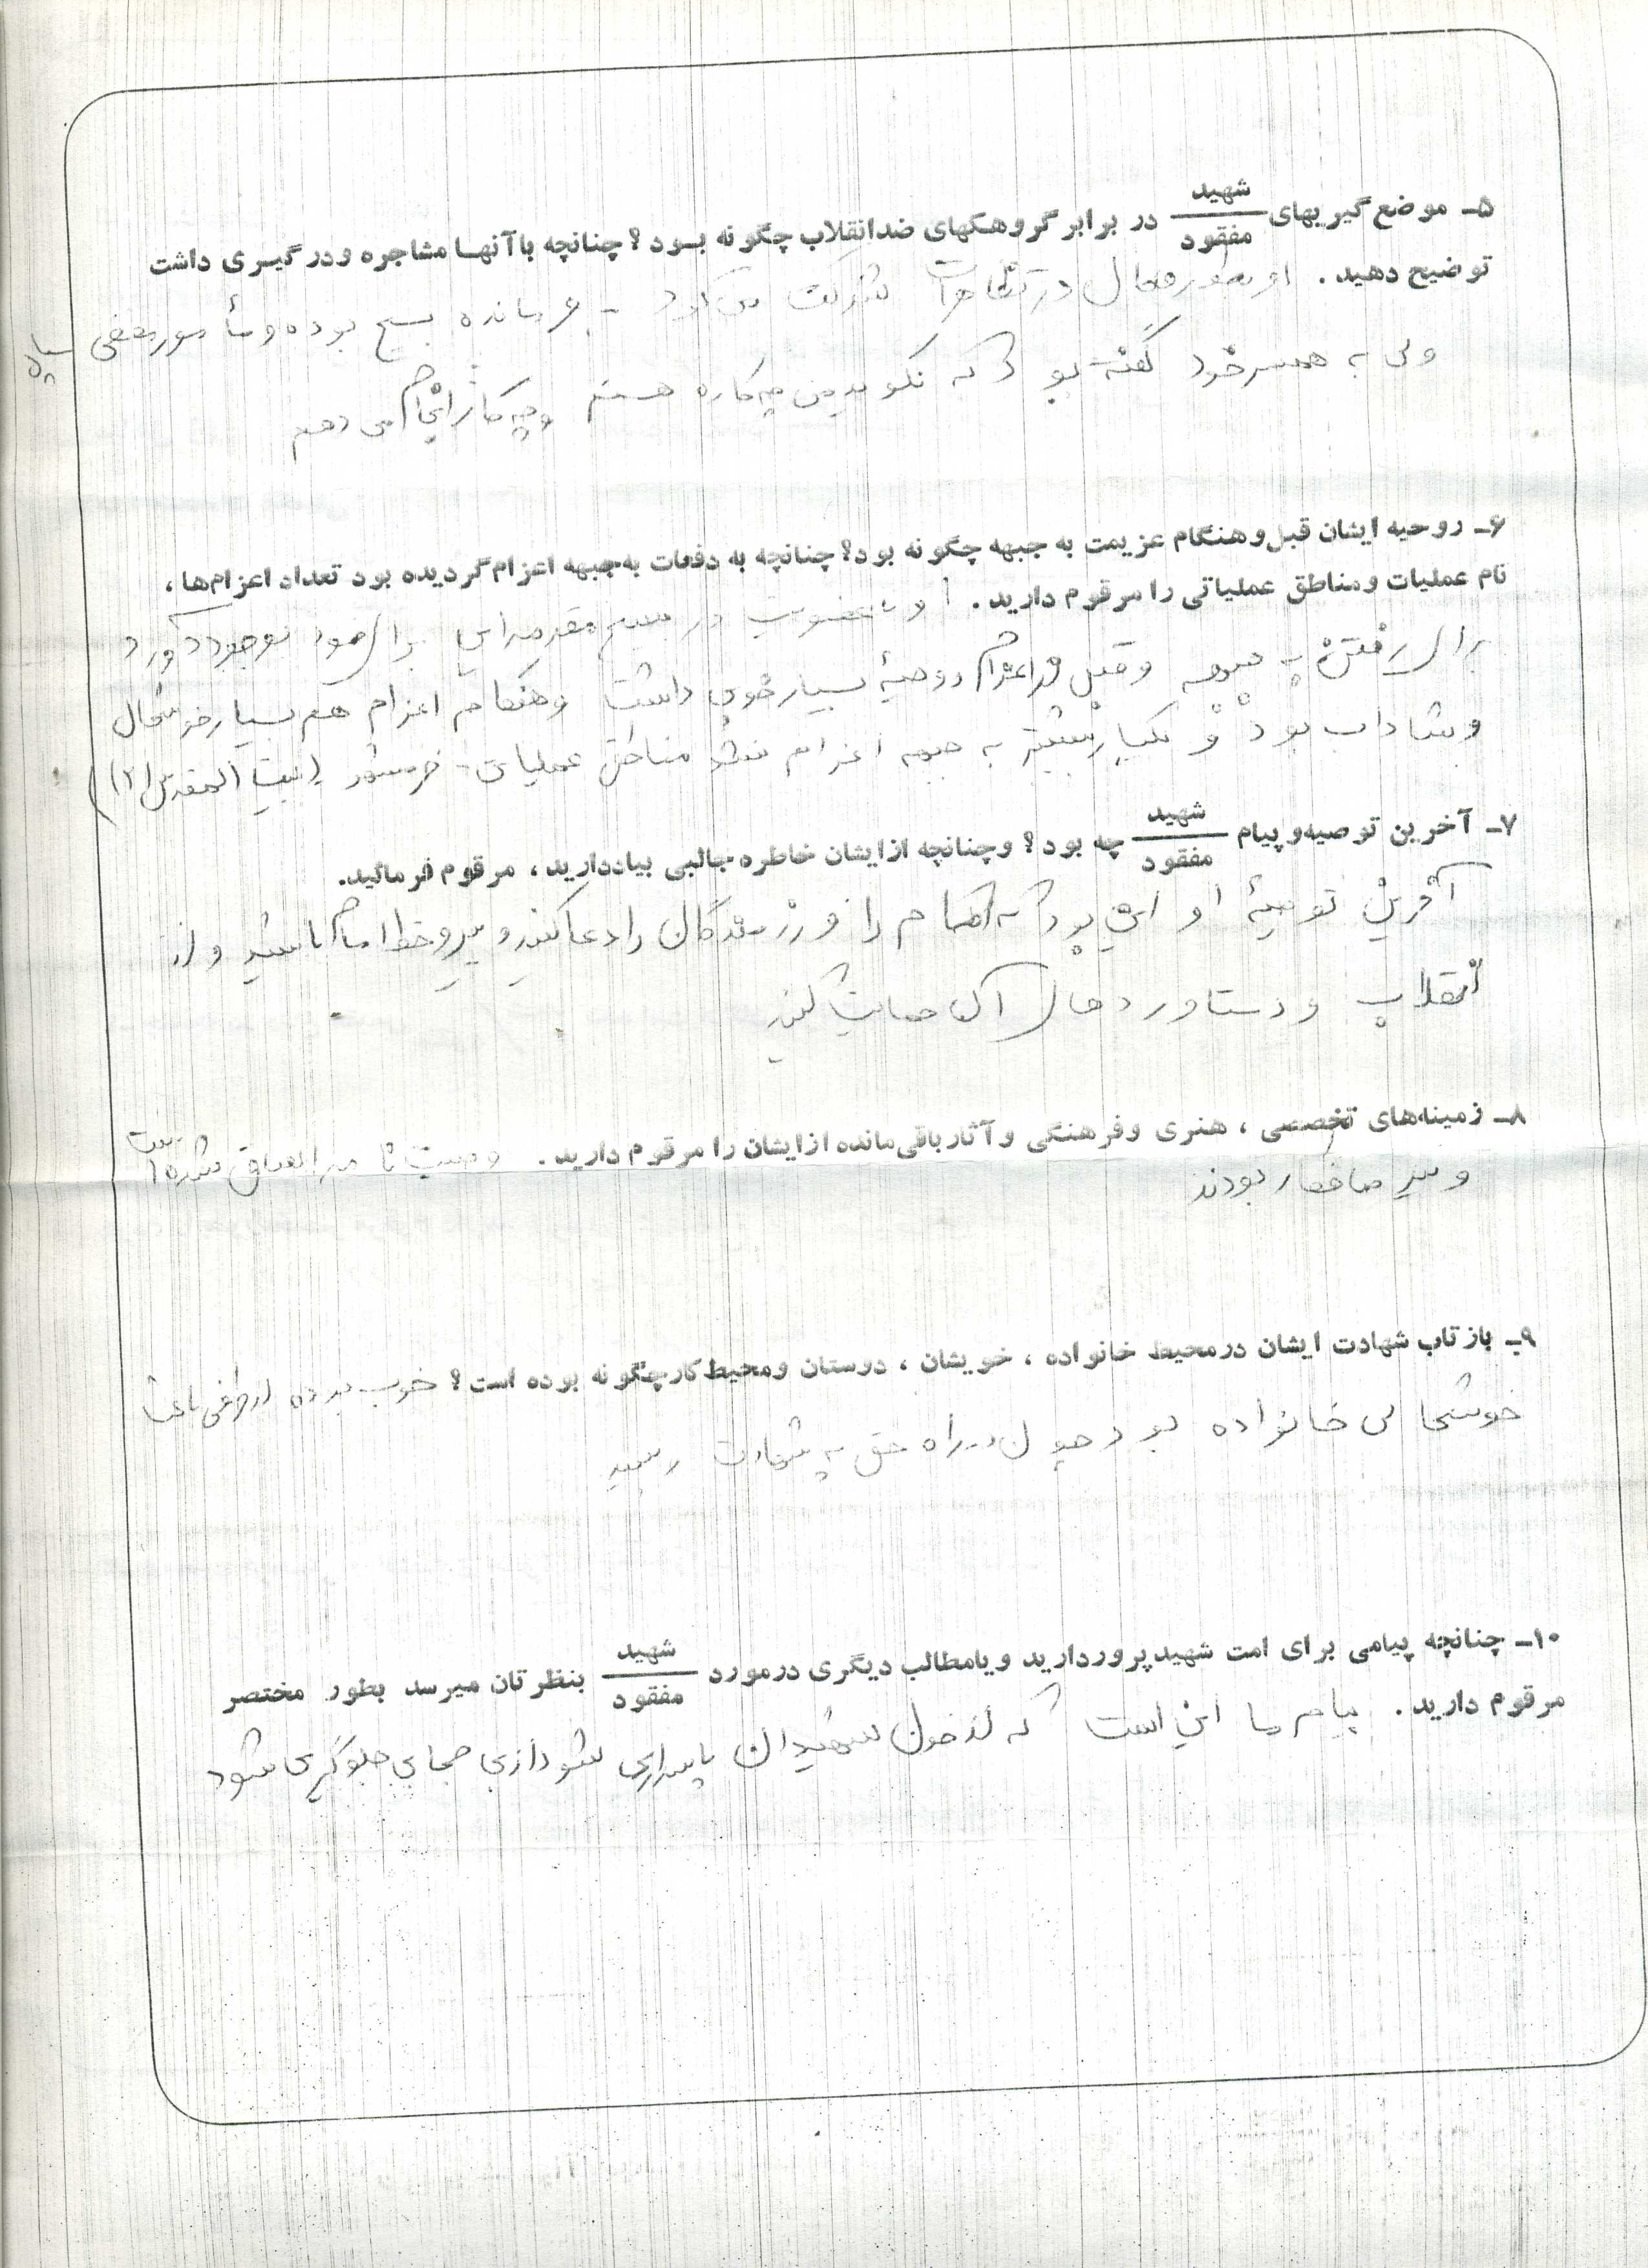 ۵ـ موضع گیریهای شهید/مفقود در برابر گروهکهای ضدانقلاب چگونه بود؟ چنانچه باآنها مشاجره ودرگیری داشت
توضیح دهید. او بطور فعال در تظاهرات شرکت می کرد - فرمانده بسیج بوده و مأمور مخفی سپاه
ولی به همسر خود گفته بود که نگویید من چه کاره هستم و چه کار انجام می دهم
۶ـ روحیه ایشان قبل وهنگام عزیمت به جبهه چگونه بود؟ چنانچه به دفعات به جبهه اعزام گردیده بود تعداد اعزام‌ها،
نام عملیات ومناطق عملیاتی را مرقوم دارید. او با عضویت در بسیج مقدمه ای برای خود بوجود آورد
برای رفتن به جبهه و قبل از اعزام روحیهٔ بسیار خوبی داشت و هنگام اعزام هم بسیار خوشحال
و شاداب بود و یکبار بیشتر به جبهه اعزام نشد مناطق عملیاتی - خرمشهر (بیت المقدس ۲)
۷ـ آخرین توصیه‌وپیام شهید/مفقود چه بود؟ وچنانچه ازایشان خاطره جالبی بیاددارید، مرقوم فرمائید.
آخرین توصیهٔ او این بود که امام را و رزمندگان را دعا کنید و پیرو خط امام باشید و از
انقلاب و دستاوردهای آن حمایت کنید
۸ـ زمینه‌های تخصصی، هنری وفرهنگی وآثارباقی‌مانده ازایشان را مرقوم دارید. وصیت نامه
بودند
۹ـ بازتاب شهادت ایشان درمحیط خانواده، خویشان، دوستان ومحیط کارچگونه بوده است؟ خوب بوده از طرفی باعث
خوشحالی خانواده بود چون در راه حق به شهادت رسید
۱۰ـ چنانچه پیامی برای امت شهیدپروردارید ویامطالب دیگری درمورد شهید/مفقود بنظرتان میرسد بطور مختصر
مرقوم دارید. پیام ما این است که از خون شهیدان پاسداری شود از بی حجابی جلوگیری شود